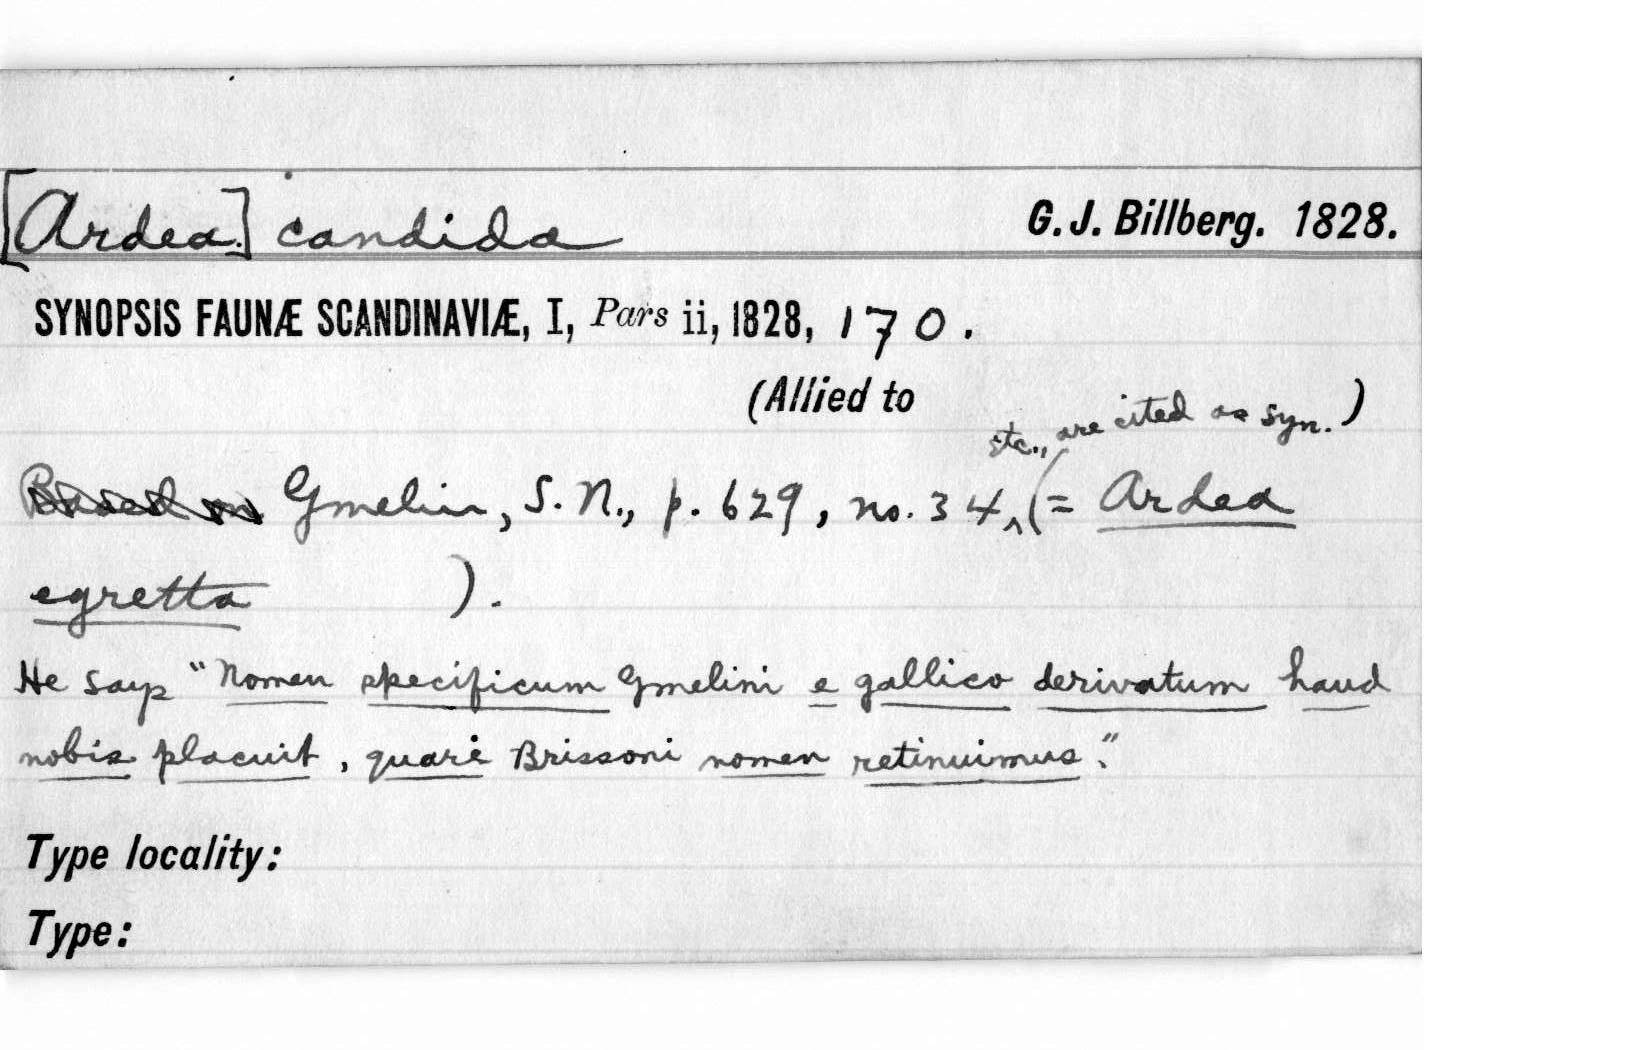 [Ardea.] candida G. J. Billberg. 1828.
SYNOPSIS FAUNÆ SCANDINAVIÆ, I, Pars ii, 1828, 170.
(Allied to )
etc., are cited as syn.
Based on Gmelin, S. N., p. 629, no. 34^(= Ardea
egretta ).
He says "Nomen specificum Gmelini e gallico derivatum haud
nobis placuit, quare Brissoni nomen retinuimus."
Type locality:
Type: